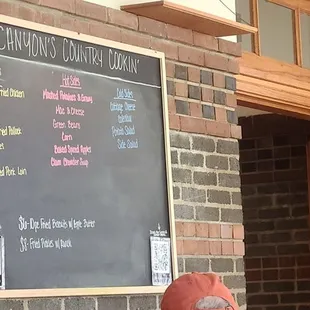 CANYON'S COUNTRY COOKIN'
Hot Sides
Mashed Potatoes & Gravy
Mac & Cheese
Green Beans
Corn
Baked Spiced Apples
Clam Chowder Soup
Cold Sides
Cottage Cheese
Coleslaw
Potato Salad
Side Salad
Fried Chicken
Fried Pollock
Pork Loin
$6 - 10pc Fried Biscuits w/ Apple Butter
$8 - Fried Pickles w/ Ranch